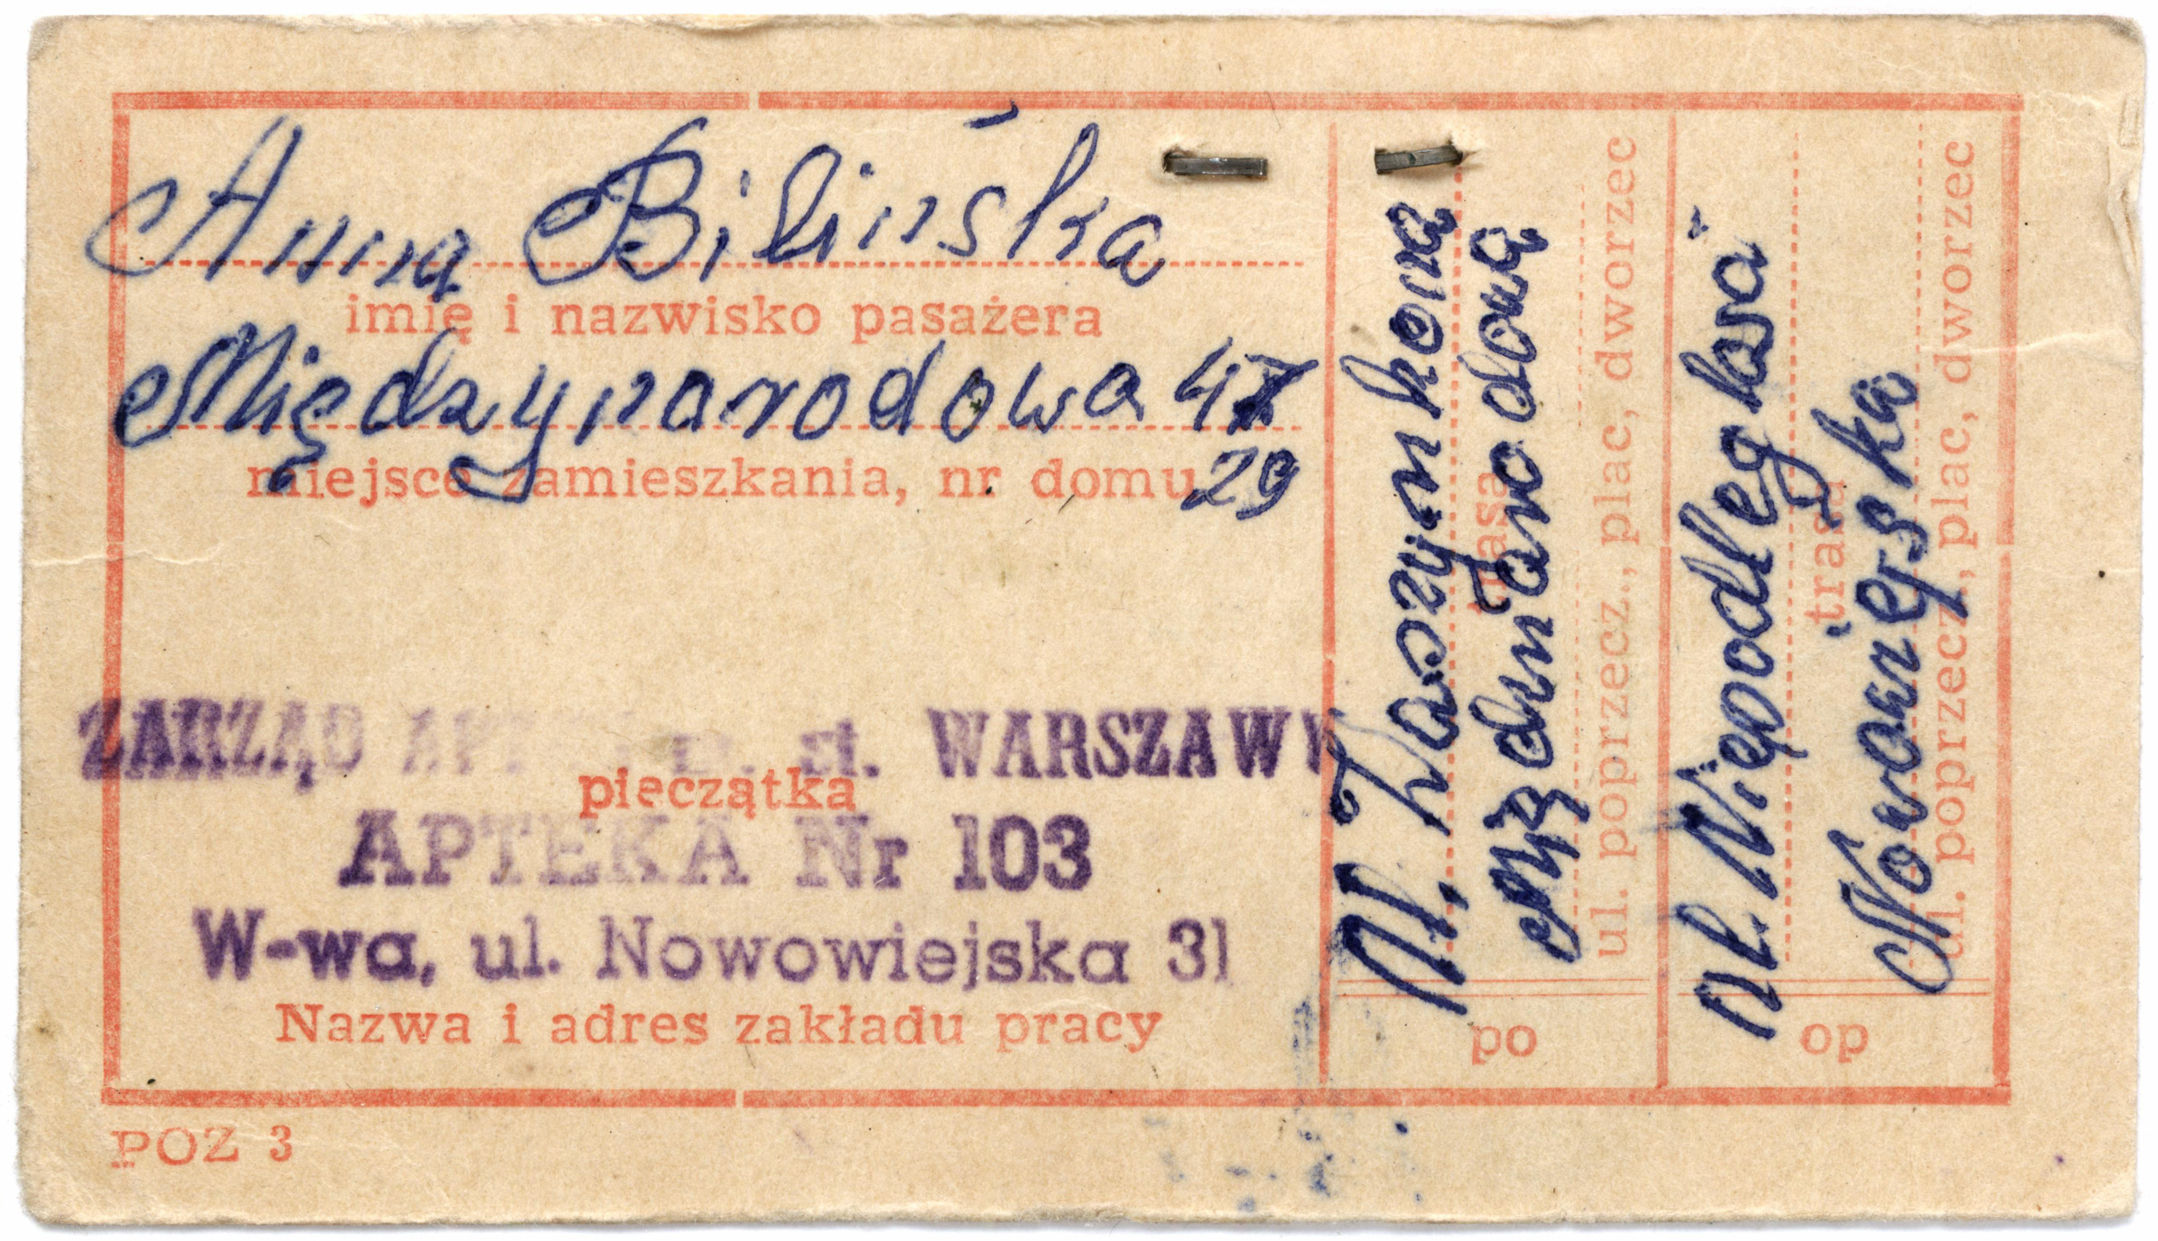 Anna Bilińska
imię i nazwisko pasażera
Międzynarodowa 47
miejsce zamieszkania, nr domu
29
ZARZĄD APT m. st. WARSZAWY
pieczątka
APTEKA Nr 103
W-wa, ul. Nowowiejska 31
Nazwa i adres zakładu pracy
POZ 3
Al. Waszynkona
trasa
Międzinarodowa
ul. poprzecz., plac, dworzec
po
Al. Niepodległość
trasa
Nowowiejska
ul. poprzecz., plac, dworzec
op